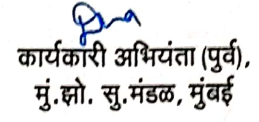 कार्यकारी अभियंता (पुर्व),
मुं.झो. सु.मंडळ, मुंबई